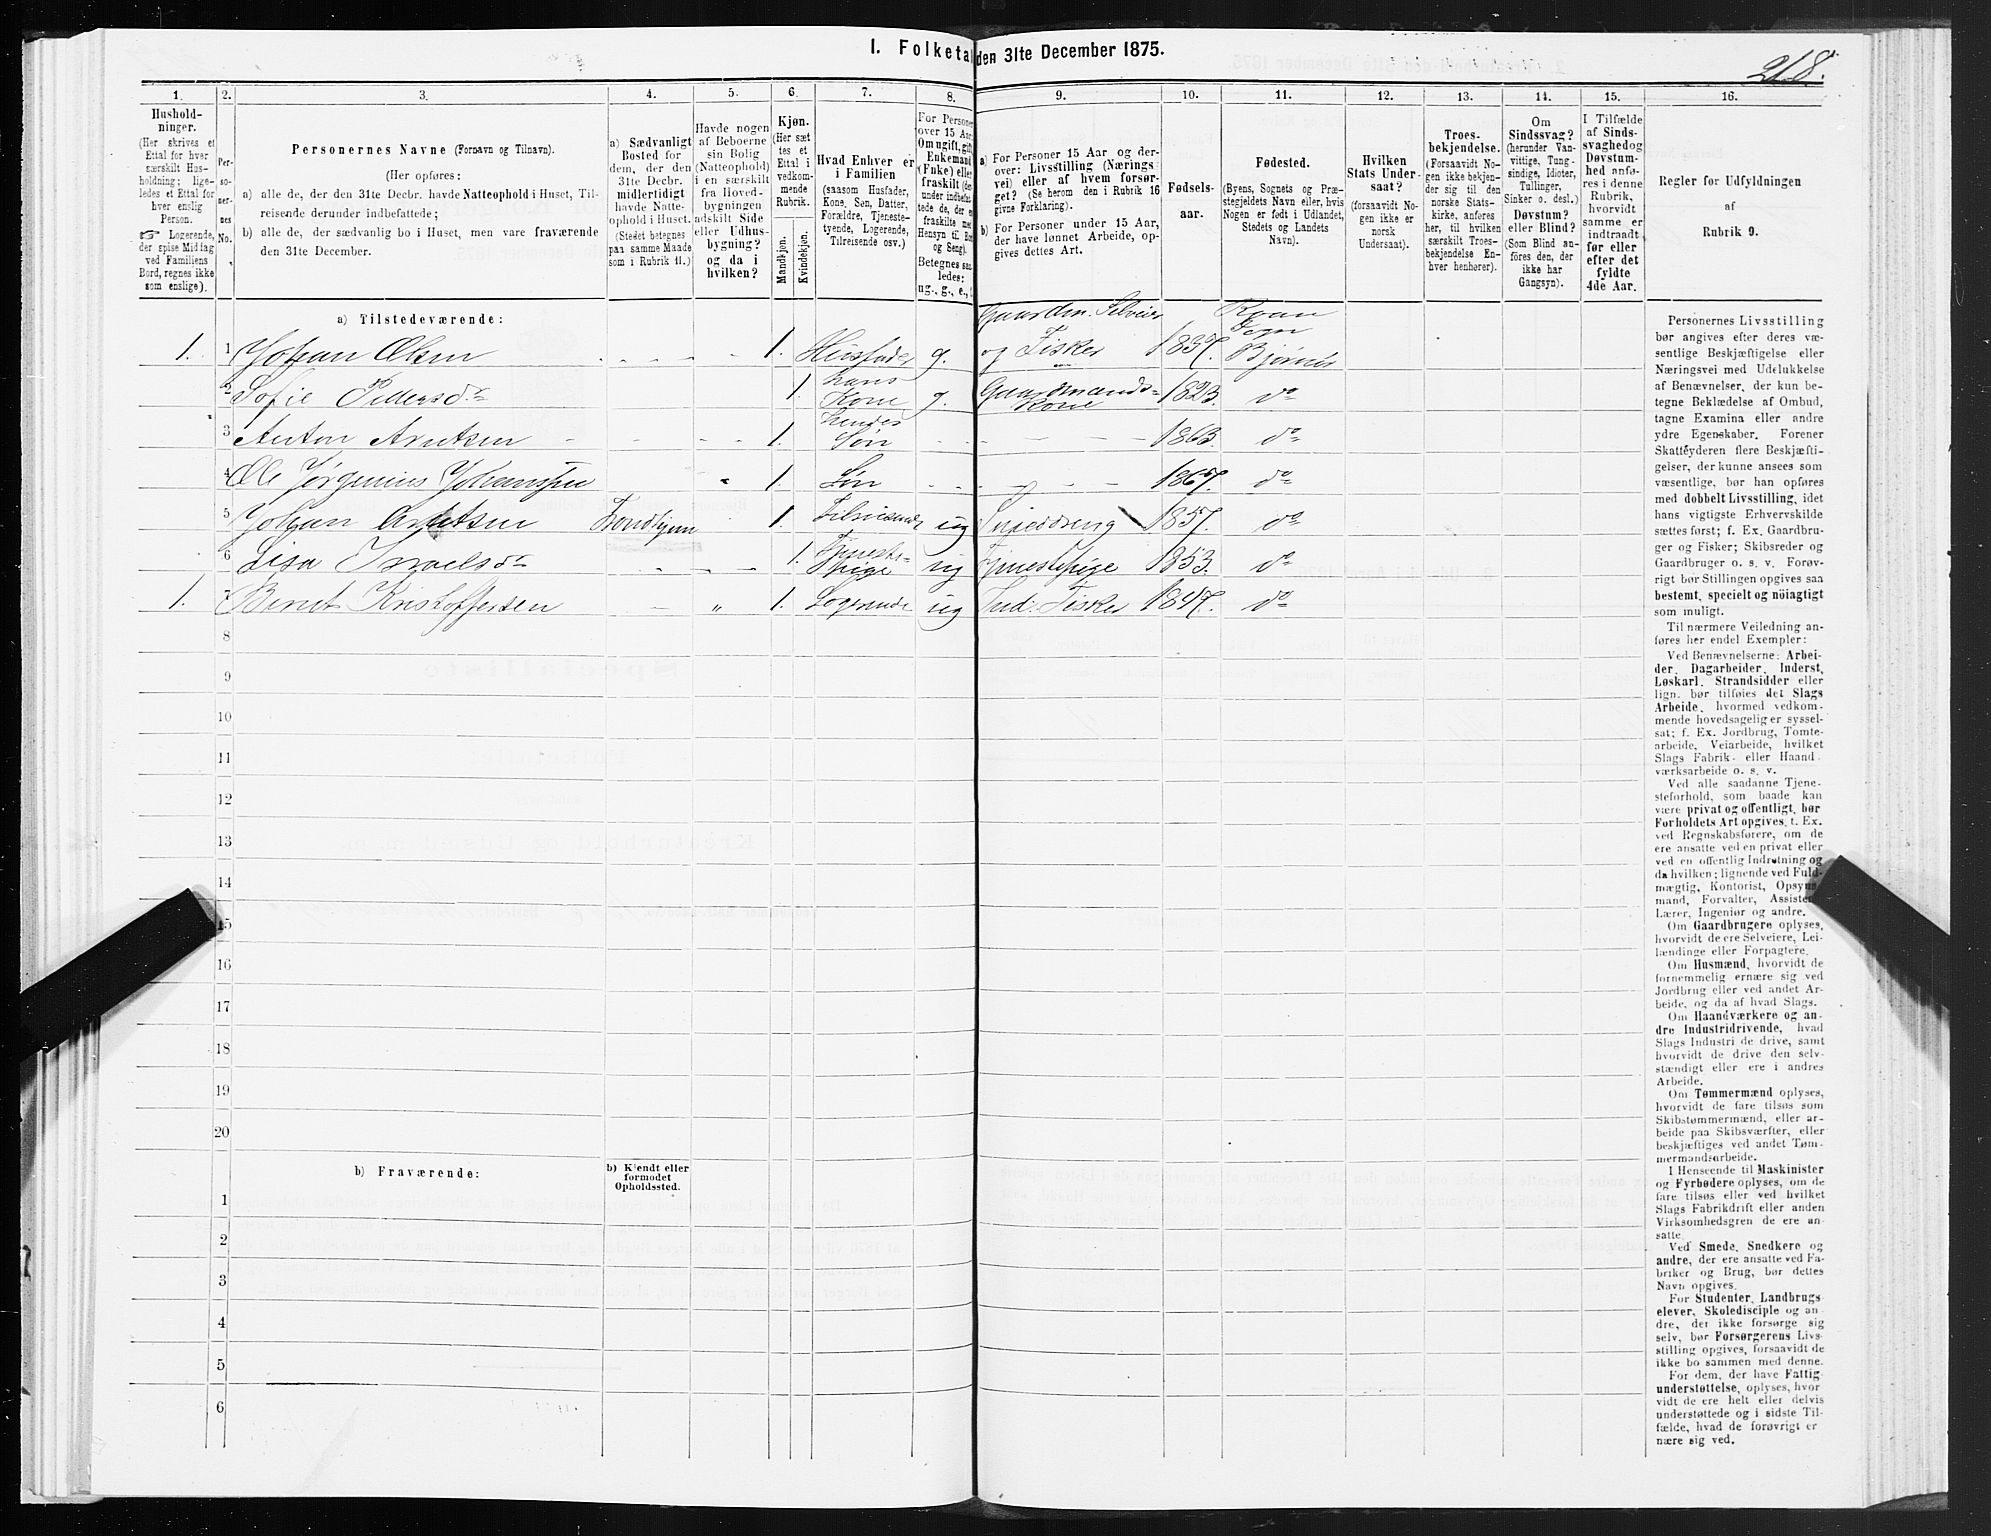 I. Folketal den 31te December 1875.
218.
1. 2. 3. 4. 5. 6. 7. 8. 9. 10. 11. 12. 13. 14. 15. 16.
Hushold-
ninger.
(Her skrives et
Ettal for hver
særskilt Hus-
holdning; lige-
ledes et Ettal for
hver enslig
Person.
☞ Logerende,
der spise Middag
ved Familiens
Bord, regnes ikke
som enslige).
Per-
so-
ner-
nes
No.
Personernes Navne (Fornavn og Tilnavn).
(Her opføres:
a) alle de, der den 31te Decbr. havde Natteophold i Huset, Til-
reisende derunder indbefattede;
b) alle de, der sædvanlig bo i Huset, men vare fraværende
den 31te December.
a) Sædvanligt
Bosted for
dem, der den
31te Decbr.
midlertidigt
havde Natte-
ophold i Huset.
(Stedet betegnes
paa samme Maade
som i Rubrik 11.)
Havde nogen
af Beboerne
sin Bolig
(Natteophold)
i en særskilt
fra Hoved-
bygningen
adskilt Side
eller Udhus-
bygning?
og da i
hvilken?
Kjøn.
(Her sæt-
tes et
Ettal i
vedkom-
mende
Rubrik.
Mandkjøn.
Kvindekjøn.
Hvad Enhver er
i Familien
(saasom Husfader,
Kone, Søn, Datter,
Forældre, Tjeneste-
tyende, Logerende,
Tilreisende osv.)
For Personer
over 15 Aar:
Om ugift, gift,
Enkemand
(Enke) eller
fraskilt (der-
under indbefat-
tede de, der ere
fraskilte med
Hensyn til Bord
og Seng).
Betegnes saa-
ledes:
ug., g., e.,
a) For Personer 15 Aar og der-
over: Livsstilling (Nærings-
vei) eller af hvem forsør-
get? (Se herom den i Rubrik 16
givne Forklaring).
b) For Personer under 15 Aar,
der have lønnet Arbeide, op-
gives dettes Art.
Fødsels-
aar.
Fødested.
(Byens, Sognets og Præ-
stegjeldets Navn eller, hvis
Nogen er født i Udlandet,
Stedets og Landets
Navn).
Hvilken
Stats Under-
saat?
(forsaavidt No-
gen ikke er
norsk
Undersaat).
Troes-
bekjendelse.
(Forsaavidt No-
gen ikke bekjen-
der sig til den
norske Stats-
kirke, anføres
her, til hvilken
særskilt Troes-
bekjendelse En-
hver henhører).
Om
Sindssvag?
(herunder Van-
vittige, Tung-
sindige, Idioter,
Tullinger,
Sinker o. desl.)
Døvstum?
eller Blind?
(Som Blind an-
føres den, der
ikke har
Gangsyn).
I Tilfælde
af Sinds-
svaghed og
Døvstum-
hed anfø-
res i denne
Rubrik,
hvorvidt
samme er
indtraadt
før eller
efter det
fyldte
4de Aar.
Regler for Udfyldningen
af
Rubrik 9.
a) Tilstedeværende:
1. 1 Johan Olsen 1. Husfader g. Gaardm. Selveier og Fisker 1837. Roan Sogn Bjørnør
2 Sofie Pedersdr 1. hans Kone g. Gaardmands-Kone 1823. do
3 Anton Arntsen 1. hendes Søn 1863. do
4 Ole Jørginius Johanssen 1. Søn 1867. do
5 Johan Arntsen Trondhjem 1. Tilreisende ug Snjeddreng 1857. do
6 Lisa Israelsdr 1. Tjeneste-Pige ug Tjenestepige 1853. do
1. 7 Bernt Kristoffersen " 1. Logerende ug Ind. Fisker 1847. do
8
9
10
11
12
13
14
15
16
17
18
19
20
b) Fraværende:
b) Kjendt eller
formodet
Opholdssted.
1
2
3
4
5
6
Personernes Livsstilling
bør angives efter deres væ-
sentlige Beskjæftigelse eller
Næringsvei med Udelukkelse
af Benævnelser, der kun be-
tegne Beklædelse af Ombud,
tagne Examina eller andre
ydre Egenskaber. Forener
Skatteyderen flere Beskjæfti-
gelser, der kunne ansees som
væsentlige, bør han opføres
med dobbelt Livsstilling, idet
hans vigtigste Erhvervskilde
sættes først; f. Ex. Gaardbru-
ger og Fisker; Skibsreder og
Gaardbruger o. s. v. Forøv-
rigt bør Stillingen opgives saa
bestemt, specielt og nøiagtigt
som muligt.
Til nærmere Veiledning an-
føres her endel Exempler:
Ved Benævnelserne: Arbei-
der, Dagarbeider, Inderst,
Løskarl, Strandsidder eller
lign. bør tilføies det Slags
Arbeide, hvormed vedkom-
mende hovedsagelig er syssel-
sat; f. Ex. Jordbrug, Tomte-
arbeide, Veiarbeide, hvilket
Slags Fabrik- eller Haand-
værksarbeide o. s. v.
Ved alle saadanne Tjene-
steforhold, som baade kan
være privat og offentligt, bør
Forholdets Art opgives, t. Ex.
ved Regnskabsførere, om de
ere ansatte ved en privat eller
ved en offentlig Indretning og
da hvilken; lignende ved Fuld-
mægtig, Kontorist, Opsyns-
mand, Forvalter, Assistent,
Lærer, Ingeniør og andre.
Om Gaardbrugere oplyses,
hvorvidt de ere Selveiere, Lei-
lændinge eller Forpagtere.
Om Husmænd, hvorvidt de
fornemmelig ernære sig ved
Jordbrug eller ved andet Ar-
beide, og da af hvad Slags.
Om Haandværkere og an-
dre Industridrivende, hvad
Slags Industri de drive, samt
hvorvidt de drive den selv-
stændigt eller ere i andres
Arbeide.
Om Tømmermænd oplyses,
hvorvidt de fare tilsøs som
Skibstømmermænd, eller ar-
beide paa Skibsværfter, eller
beskjæftiges ved andet Tøm-
mermandsarbeide.
I Henseende til Maskinister
og Fyrbødere oplyses, om de
fare tilsøs eller ved hvilket
Slags Fabrikdrift eller anden
Virksomhedsgren de ere an-
satte.
Ved Smede, Snedkere og
andre, der ere ansatte ved Fa-
briker og Brug, bør dettes
Navn opgives.
For Studenter, Landbrugs-
elever, Skoledisciple og an-
dre, der ikke forsørge sig
selv, bør Forsørgerens Livs-
stilling opgives, forsaavidt de
ikke bo sammen med denne.
For dem, der have Fattig-
understøttelse, oplyses, hvor-
vidt de ere helt eller delvis
understøttede og i sidste Til-
fælde, hvad de forøvrigt er-
nære sig ved.